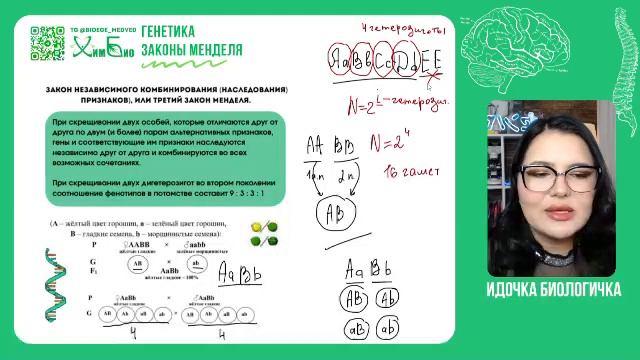 TG @BIOEGE_MEDVED
ХимБио
ГЕНЕТИКА
ЗАКОНЫ МЕНДЕЛЯ
ЗАКОН НЕЗАВИСИМОГО КОМБИНИРОВАНИЯ (НАСЛЕДОВАНИЯ
ПРИЗНАКОВ), ИЛИ ТРЕТИЙ ЗАКОН МЕНДЕЛЯ.
При скрещивании двух особей, которые отличаются друг от
друга по двум (и более) парам альтернативных признаков,
гены и соответствующие им признаки наследуются
независимо друг от друга и комбинируются во всех
возможных сочетаниях.
При скрещивании двух дигетерозигот во втором поколении
соотношение фенотипов в потомстве составит 9 : 3 : 3 : 1
(А – жёлтый цвет горошин, а – зелёный цвет горошин,
В – гладкие семена, b – морщинистые семена):
P ♀AABB × ♂aabb
жёлтые гладкие зелёные морщинистые
G AB ab
F₁ AaBb
жёлтые гладкие – 100%
AaBb
P ♀AaBb × ♂AaBb
жёлтые гладкие жёлтые гладкие
G AB Ab aB ab AB Ab aB ab
4 4
4 гетерозиготы
Aa Bb Cc Dd EE
N=2 i – гетерозиг.
AA BB N=2⁴
16 гамет
AB
Aa Bb
AB Ab
aB ab
ИДОЧКА БИОЛОГИЧКА